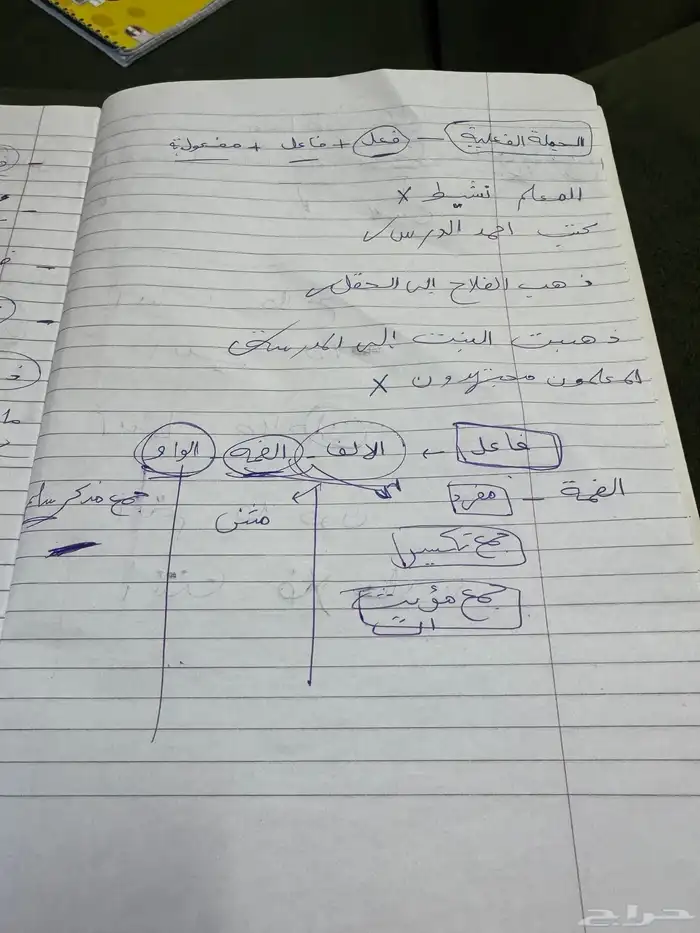 الجملة الفعلية - فعل + فاعل + مفعول به
المعلم نشيط ×
كتب احمد الدرس ✓
ذهب الفلاح إلى الحقل ✓
ذهبت البنت إلى المدرسة ✓
المعلمون مجتهدون ×
فاعل ← الالف - الضمة - الواو
الضمة - مفرد
مثنى
جمع مذكر سا
جمع تكسير
جمع مؤنث
ات
حراج